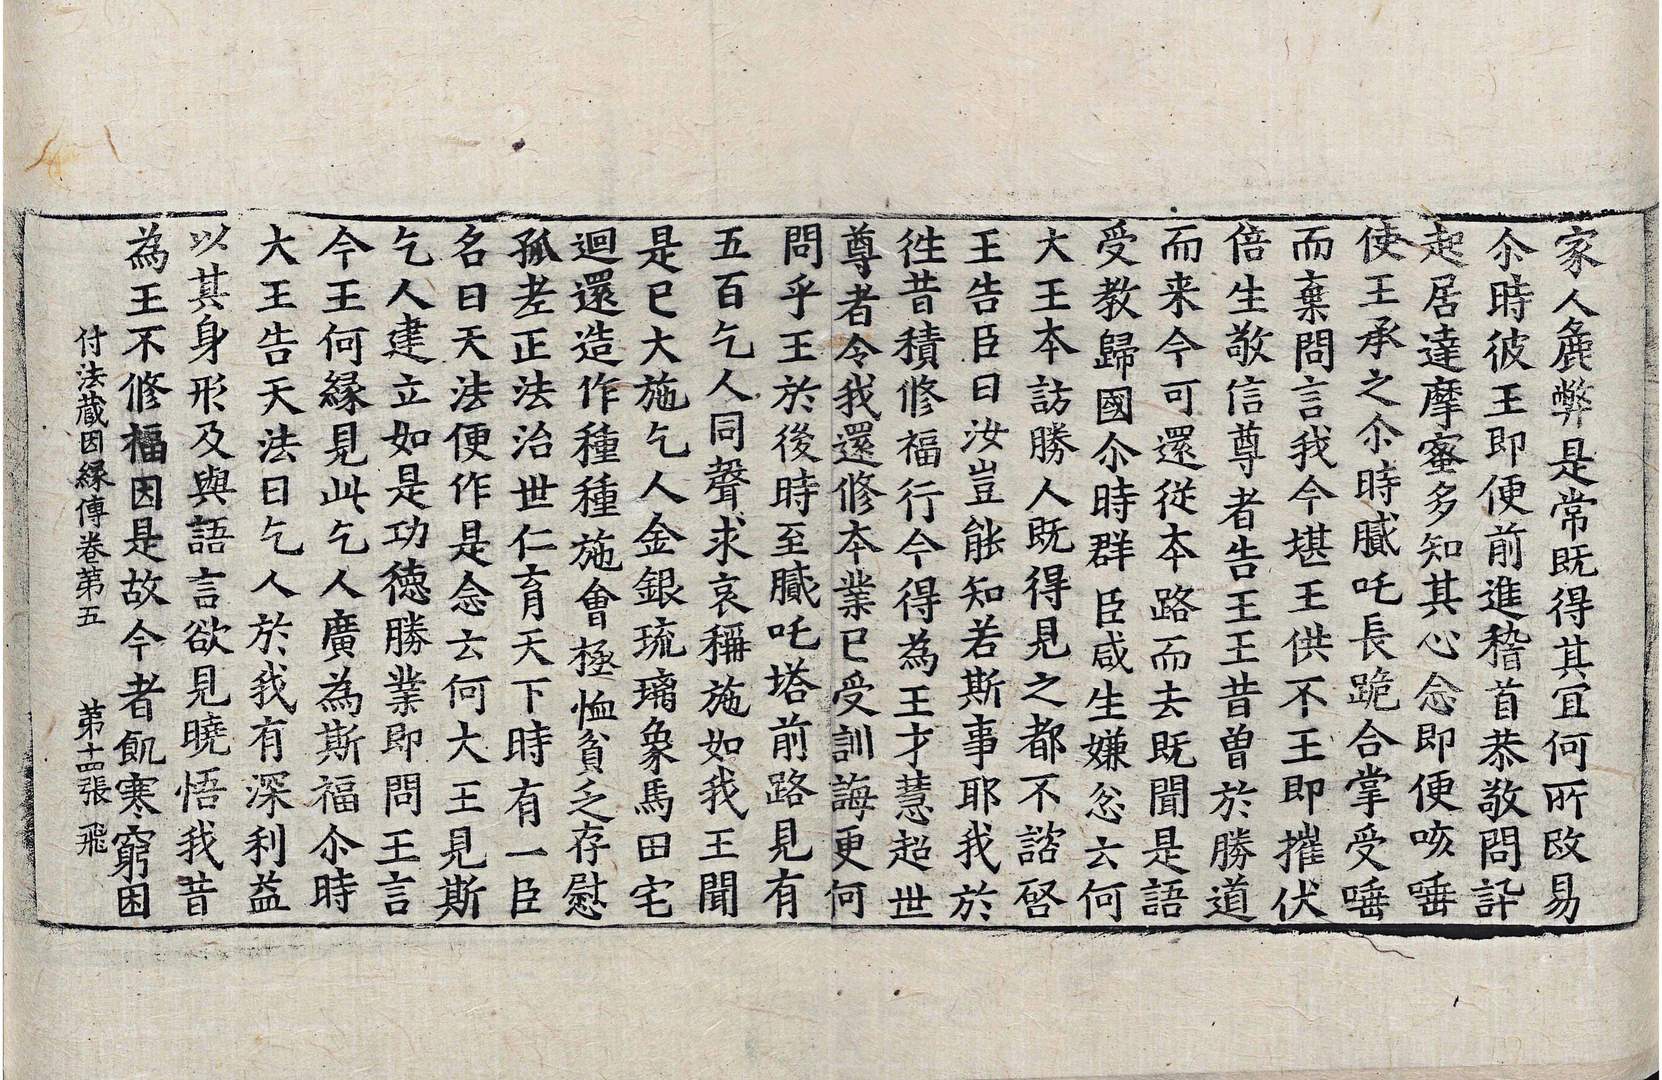 家人麁弊是常既得其宜何所改易
尒時彼王即便前進稽首恭敬問訊
起居達摩蜜多知其心念即便咳唾
使王承之尒時膩吒長跪合掌受唾
而棄問言我今堪王供不王即摧伏
倍生敬信尊者告王王昔曾於勝道
而来今可還從本路而去既聞是語
受教歸國尒時群臣咸生嫌忿云何
大王本訪勝人既得見之都不諮啓
王告臣曰汝豈能知若斯事耶我於
徃昔積修福行今得為王才慧超世
尊者令我還修本業已受訓誨更何
問乎王於後時至膩吒塔前路見有
五百乞人同聲求哀稱施如我王聞
是已大施乞人金銀琉璃象馬田宅
迴還造作種種施會極恤貧乏存慰
孤老正法治世仁育天下時有一臣
名曰天法便作是念云何大王見斯
乞人建立如是功德勝業即問王言
今王何縁見此乞人廣為斯福尒時
大王告天法曰乞人於我有深利益
以其身形及與語言欲見曉悟我昔
為王不修福因是故今者飢寒窮困
付法藏因縁傳卷第五 第十四張 飛